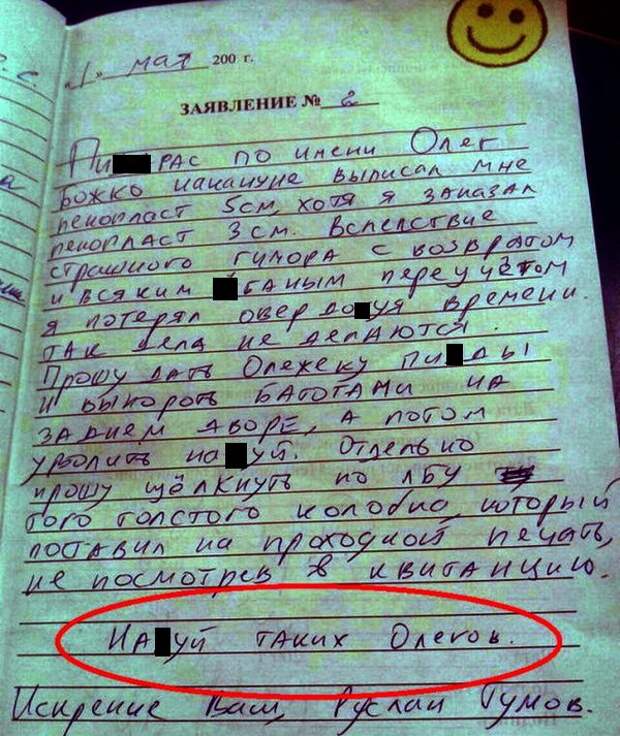 «1» мая 200 г.
ЗАЯВЛЕНИЕ № 2
Пи рас по имени Олег
Божко накануне выписал мне
пенопласт 5см, хотя я заказал
пенопласт 3см. Вследствие
страшного гимора с возвратом
и всяким баным переучётом
я потерял овердо уя времени.
Так дела не делаются.
Прошу дать Олежеку пи ды
и выпороть батогами на
заднем дворе, а потом
уволить на уй. Отдельно
прошу щёлкнуть по лбу
того толстого колобка, который
поставил на проходной печать,
не посмотрев в квитанцию.
На уй таких Олегов.
Искренне Ваш, Руслан Гумов.